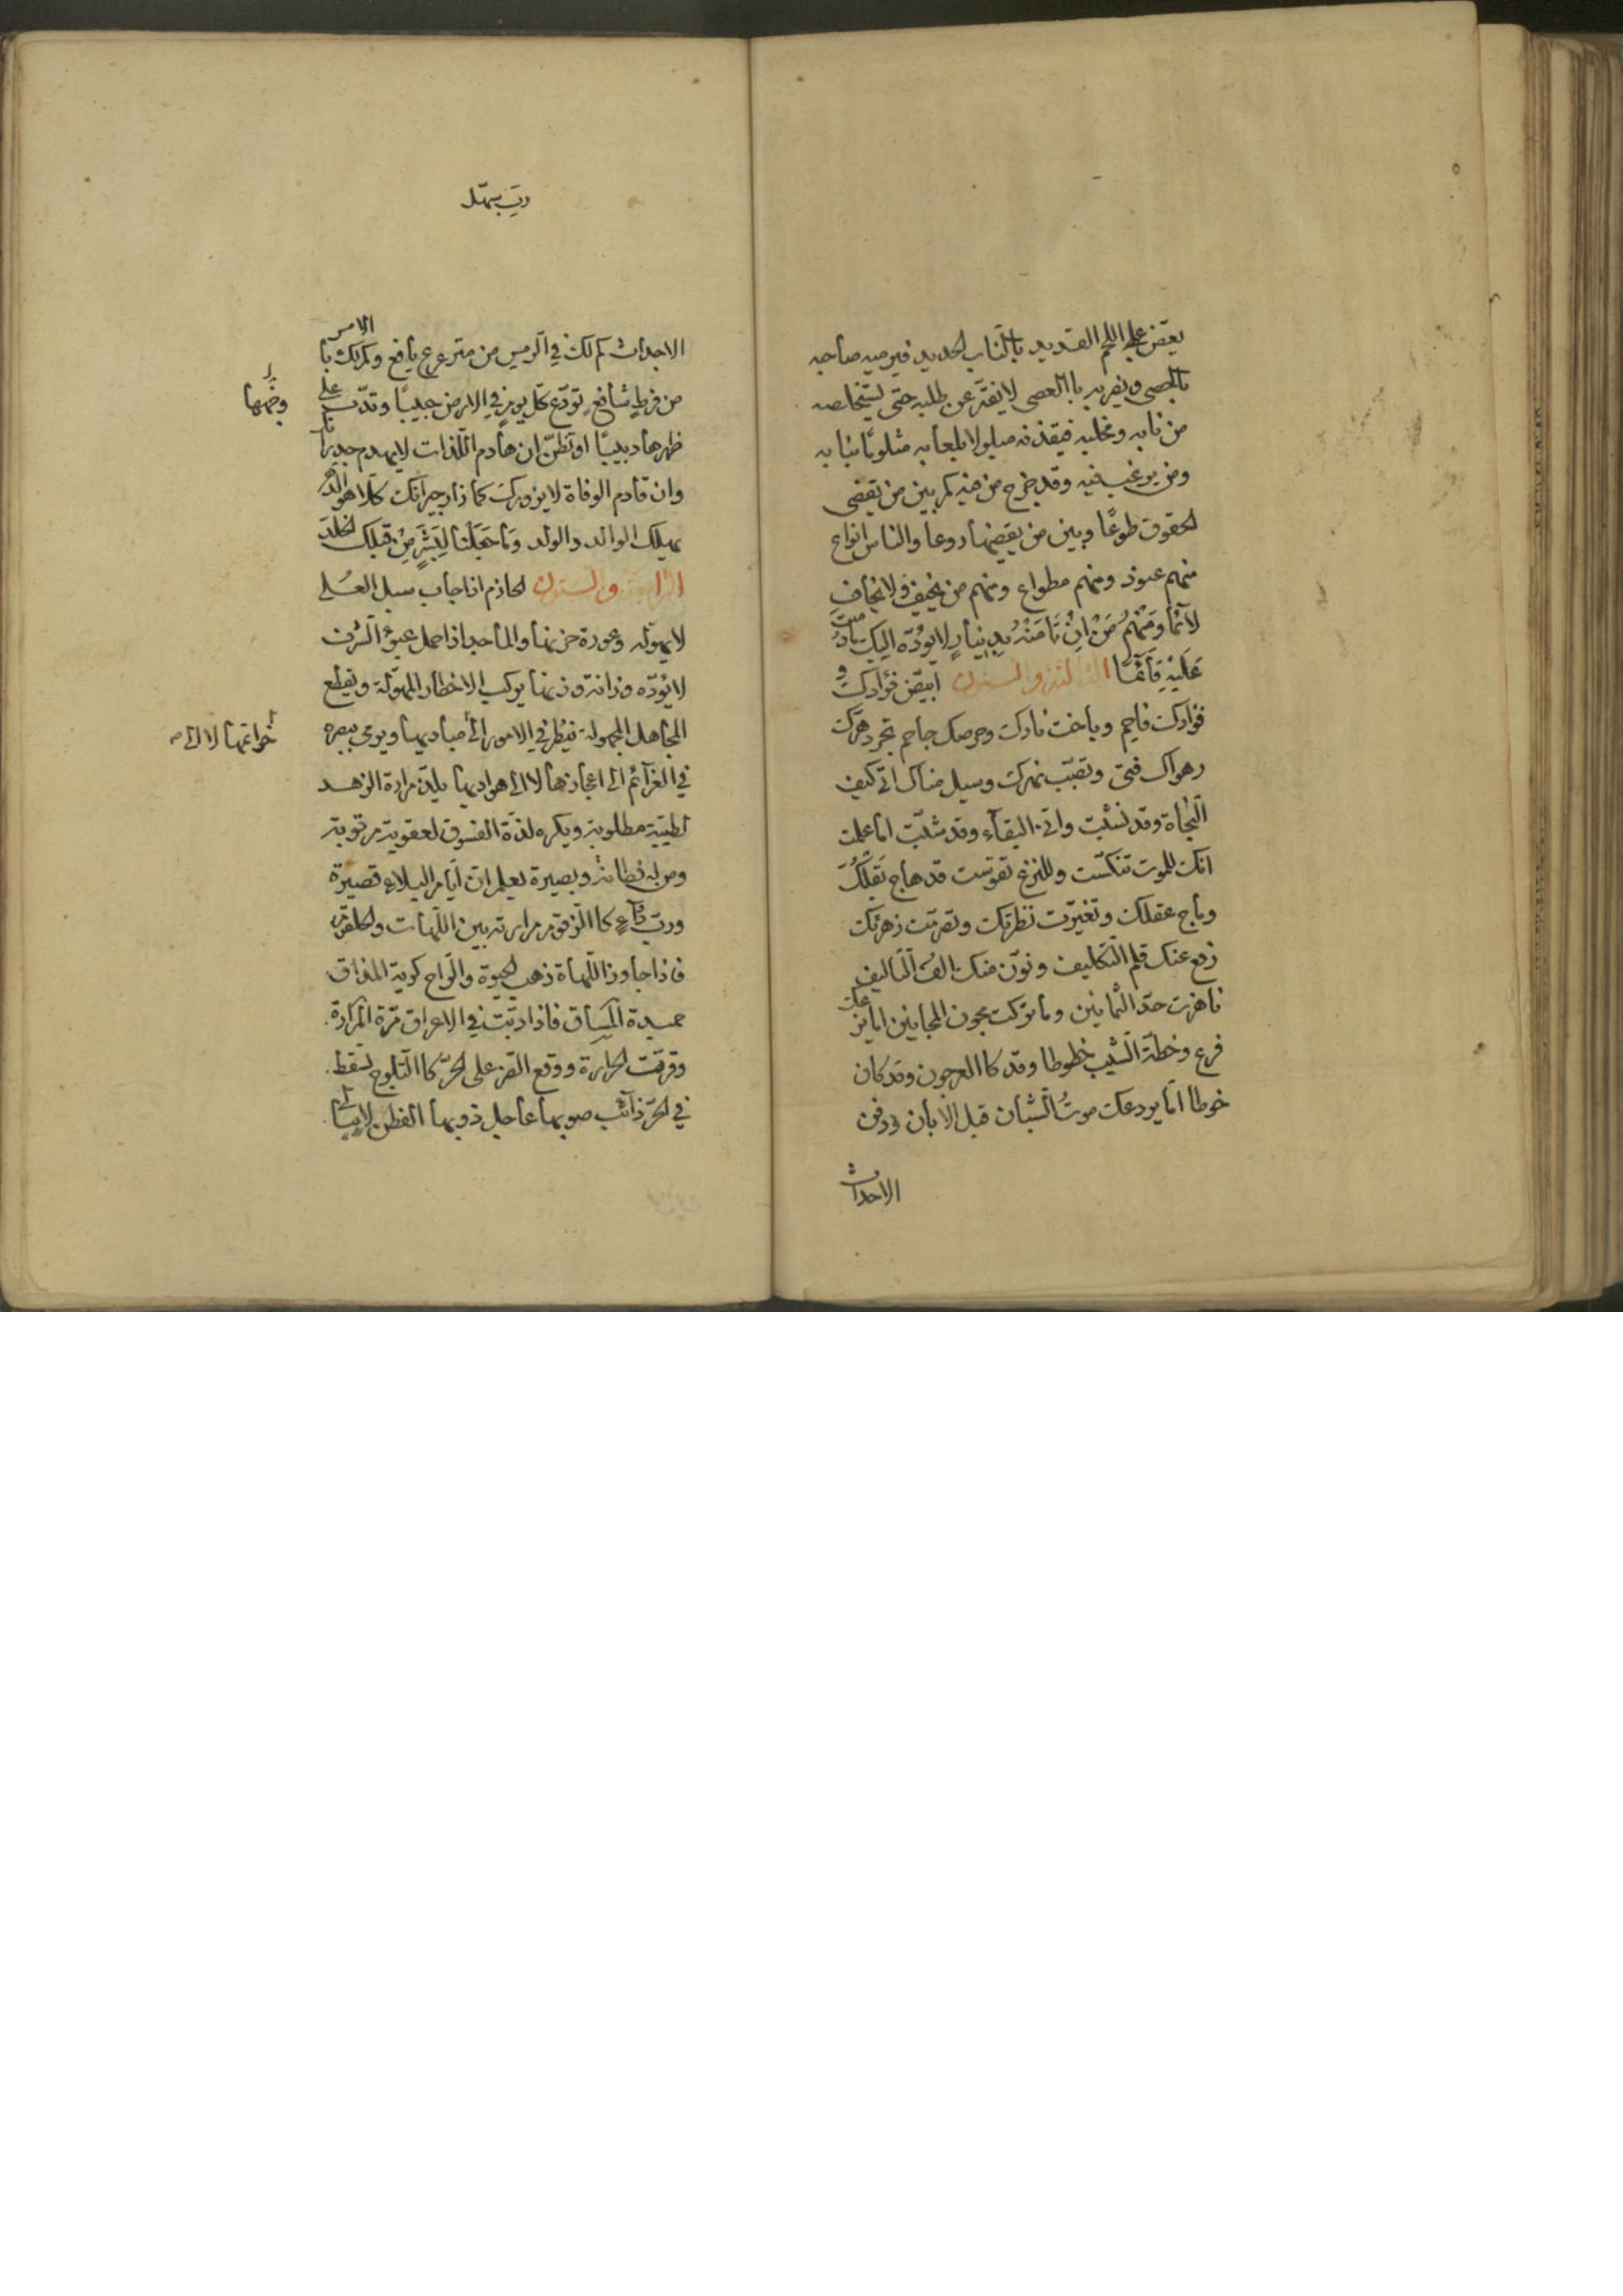 يعضّ على اللحم القديد بالنّاب الحديد فيرميه صاحبه
بالحصى ويضربه باالعصى لا يفتر عن طلبه حتى يستخلصه
من نابه ومخلبه فيقذفه مبلولا بلعابه مثلومًا بنابه
ومن يرغب فيه وقد خرج من فيه كم بين من يقضى
الحقوق طوعًا وبين من يقضيها روعا والناس انواع
منهم عنود ومنهم مطواع ومنهم من يخيف ولا يخاف
لائما ومنهم من ان تامنه بدينار لا يؤدّه اليك الا ما دمت
عليه قائمًا الثالثة والستون ابيضّ فؤادك و
فؤادك فاحم وباخت نارك وحرصك جاحم تجرد هرّك
وهواك فتى ونضب نهرك وسيل مناك اتى كيف
النجاة وقد نشبت وانى البقاء وقد شبت اما علمت
انك للموت تنكست وللنزع تقوّست قد هاج بقلك
وباخ عقلك وتغيّرت نظرتك وتصرمت زهرتك
رفع عنك قلم التكليف ونوّن منك الف التأليف
ناهزت حدّ الثمانين وما تركت مجون المجانين اما يزعك
فرع وخطه الشيب خطوطا وقد كاالعرجون وقد كان
خوطا امّا يردعك موت الشبان قبل الابان ودفن
الاحداث
وربّ سهل
الاجداث كم لك فى الرمس من مترعرع يافع وكم لك با الامس
من فرط شافع تودّع كلّ يوم فى الارض حبيبًا وتدبّ على
وخمها
ظهرها دبيبًا او تظنّ ان هادم اللذات لا يهدم جدرانك
وان قادم الوفاة لا يزورك كما زار جيرانك كلا هو الّذى
يهلك الوالد والولد وما جعلنا لبشر من قبلك الخلد
الرابعة والستون الحازم اذا جاب سبل العلى
لا يهوله وعورة حزنها والماجد اذا حمل عبؤ الشرف
لا يؤدّه رزانة وزنها يركب الاخطار المهولة ويقطع
المجاهل المجهولة فينظر فى الامور الى مباديها ويرمى ببصره
خواتمها لا الى
فى الغرائم الى اعجازها لا الى هواديها يلذّ مرارة الزهد
لطيبة مطلوبة ويكره لذّة الفسوق لعقوبة مرقوبة
ومن له فطانة وبصيرة يعلم انّ ايّام البلاء قصيرة
وربّ دواء كاالزقوم مرارته بين اللهات والحلقوم
فاذا جاوز اللهاة ذهب الحيوة والراح كريهة المذاق
حميدة المساق فاذا دبّت فى الاعراق مرّة المرارة
وقرقت الحرارة ووقع القرّ على الحرّ كاالثلوج تسقط
فى الحرّ ذائب صوبها عاجل ذوبها الفطن لا يبالى